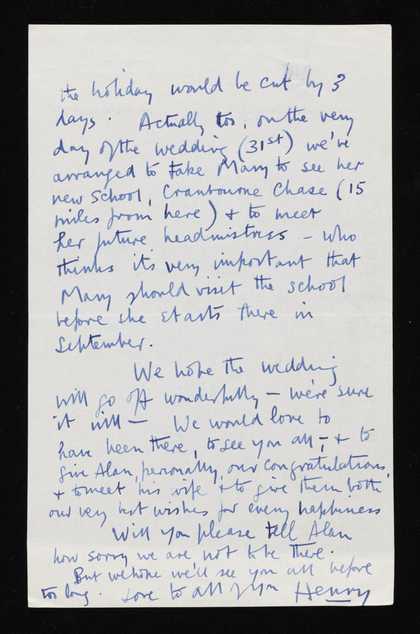 the holiday would be cut by 3
days. Actually too, on the very
day of the wedding (31st) we're
arranged to take Mary to see her
new school, Cranbourne Chase (15
miles from here) & to meet
her future headmistress – who
thinks its very important that
Mary should visit the school
before she starts there in
September.
We hope the wedding
will go off wonderfully – we're sure
it will – We would love to
have been there, to see you all, – & to
give Alan, personally, our congratulations,
& to meet his wife & to give them both
our very best wishes for every happiness
Will you please tell Alan
how sorry we are not to be there.
But we hope we'll see you all before
too long. Love to all of you Henry